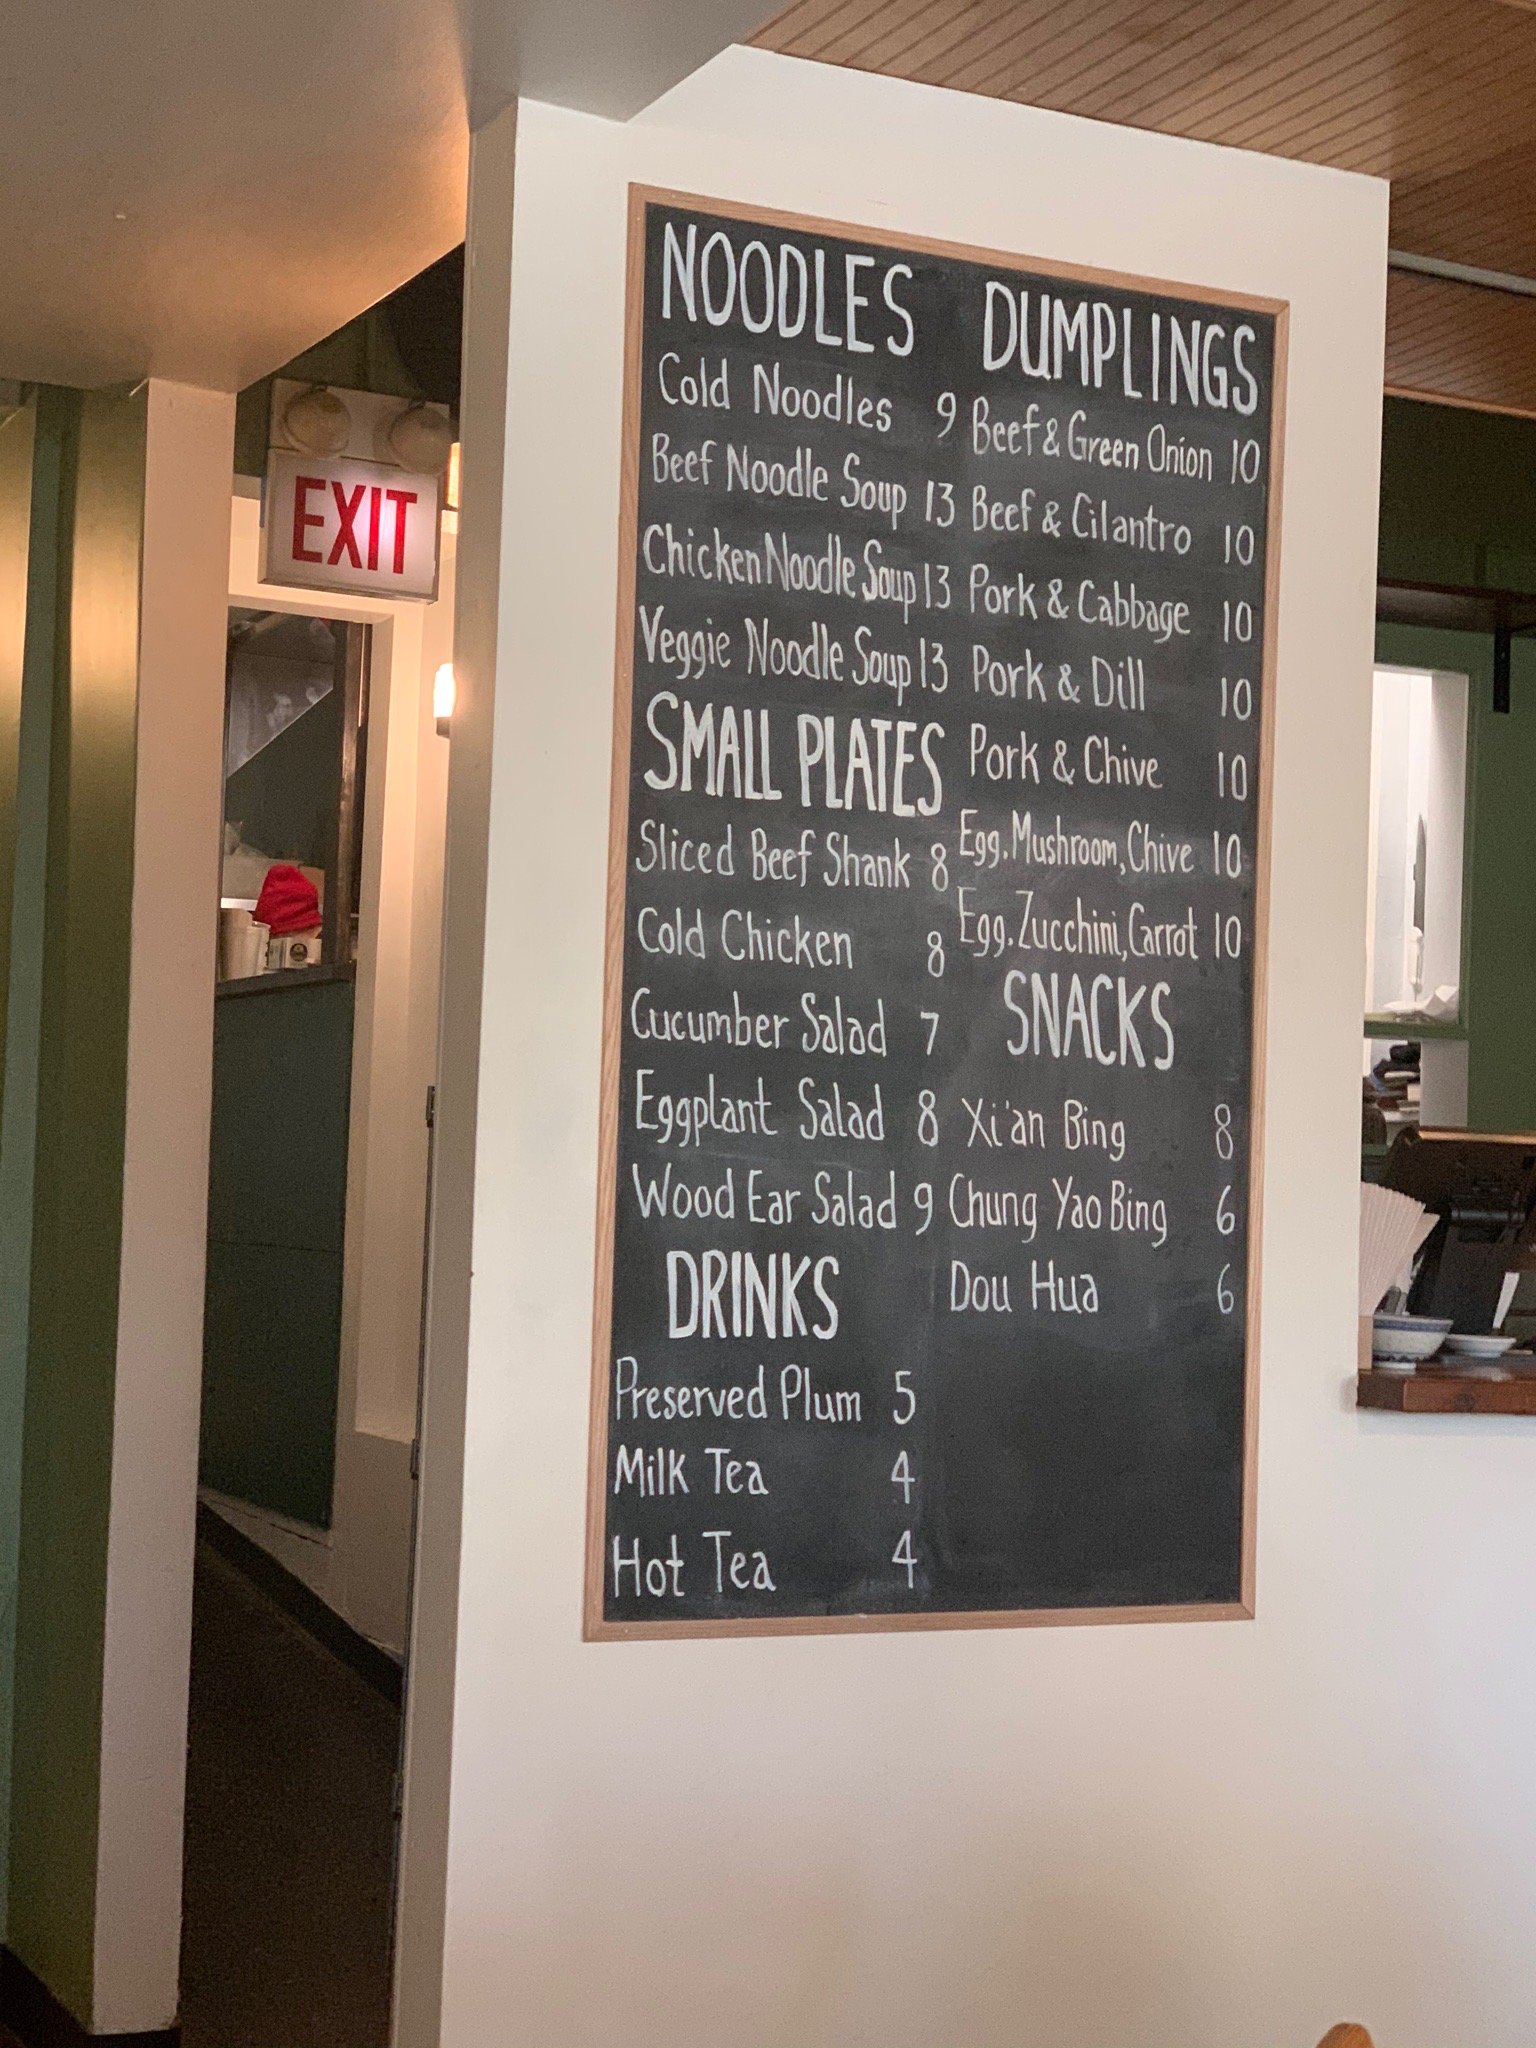 EXIT
NOODLES
Cold Noodles 9
Beef Noodle Soup 13
Chicken Noodle Soup 13
Veggie Noodle Soup 13
SMALL PLATES
Sliced Beef Shank 8
Cold Chicken 8
Cucumber Salad 7
Eggplant Salad 8
Wood Ear Salad 9
DRINKS
Preserved Plum 5
Milk Tea 4
Hot Tea 4
DUMPLINGS
Beef & Green Onion 10
Beef & Cilantro 10
Pork & Cabbage 10
Pork & Dill 10
Pork & Chive 10
Egg, Mushroom, Chive 10
Egg, Zucchini, Carrot 10
SNACKS
Xi'an Bing 8
Chung Yao Bing 6
Dou Hua 6